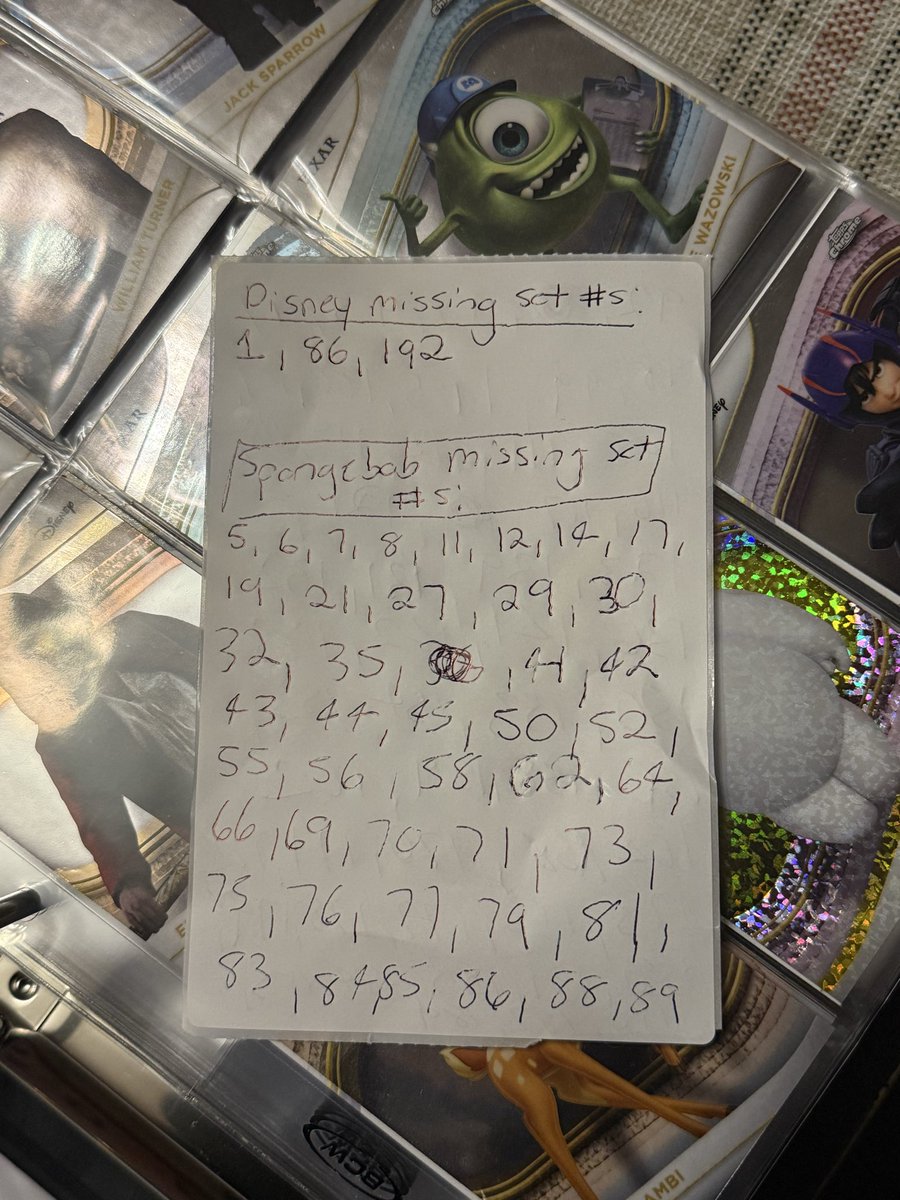 JACK SPARROW
WILLIAM TURNER
XAR
WAZOWSKI
chrome
Disney missing set #s:
1, 86, 192
Spongebob missing set
#s:
5, 6, 7, 8, 11, 12, 14, 17,
19, 21, 27, 29, 30,
32, 35, 41, 42
43, 44, 45, 50, 52,
55, 56, 58, 62, 64,
66, 69, 70, 71, 73,
75, 76, 77, 79, 81,
83, 84, 85, 86, 88, 89
Disney
BCW
AMBI